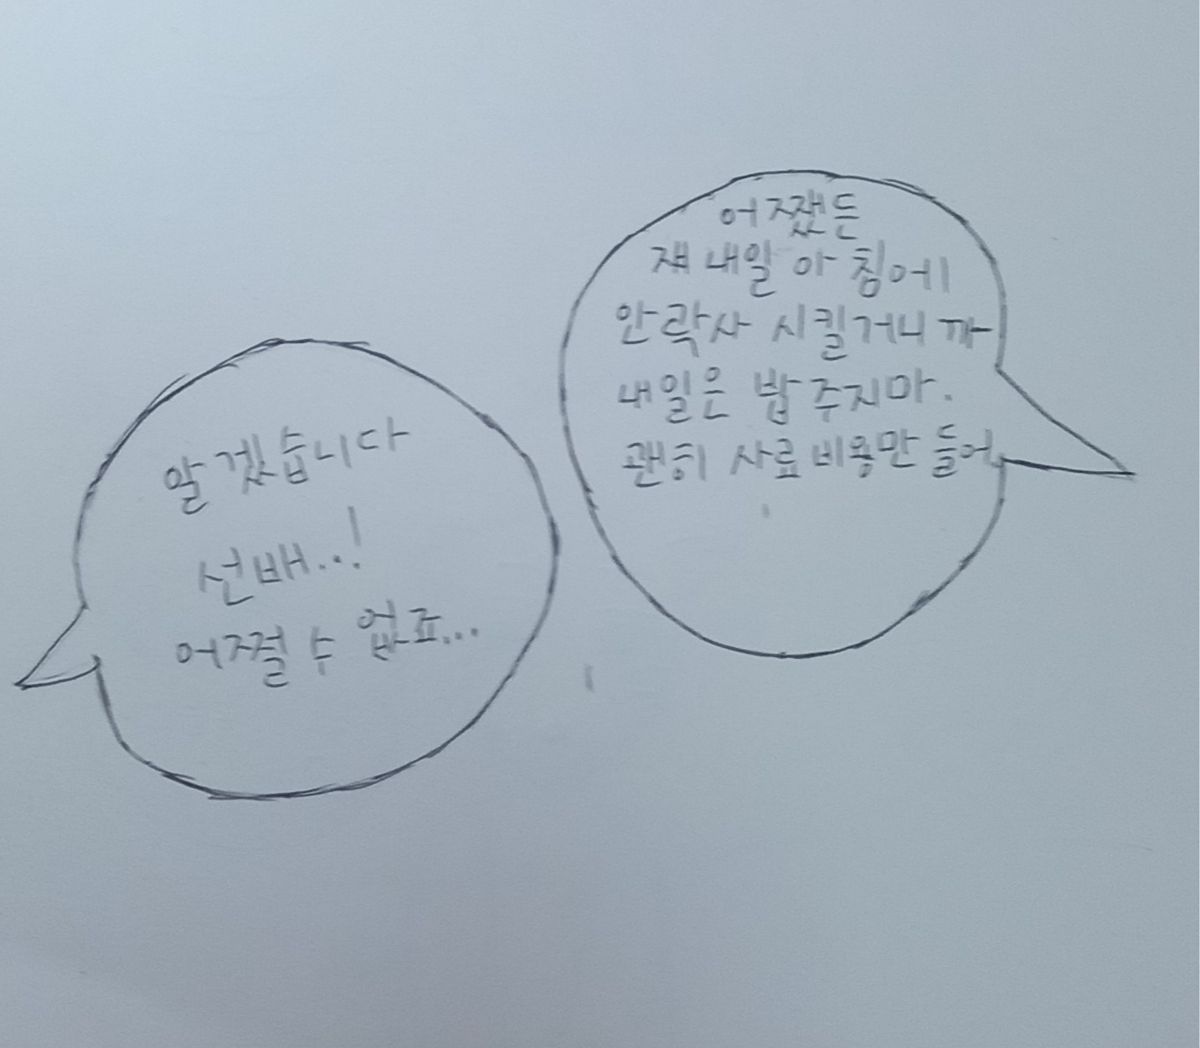 어쨌든
쟤 내일 아침에
안락사 시킬거니까
내일은 밥 주지마.
괜히 사료비용만 들어
알겠습니다
선배..!
어쩔 수 없죠...